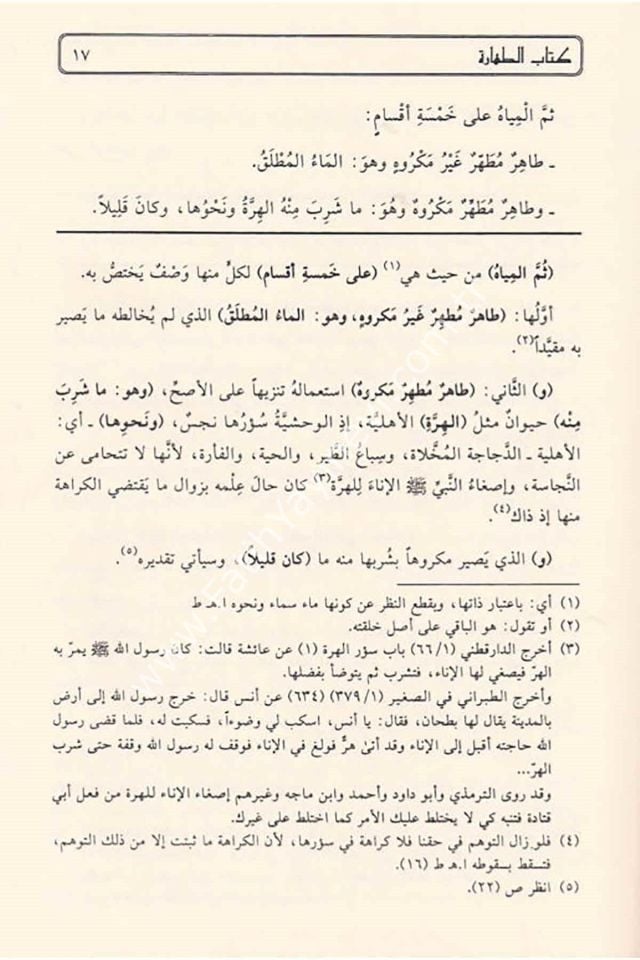 كتاب الطهارة ١٧
ثمَّ الْمِياهُ على خَمْسَةِ أقْسامٍ:
ـ طاهِرٌ مُطَهِّرٌ غَيْرُ مَكْرُوهٍ وهوَ: المَاءُ المُطْلَقُ.
ـ وطاهِرٌ مُطَهِّرٌ مَكْرُوهٌ وهُوَ: ما شَرِبَ مِنْهُ الهِرَّةُ ونَحْوُها، وكانَ قَلِيلاً.
(ثُمَّ المِياهُ) من حيث هي(١) (على خَمسةِ أقسام) لكلٍّ منها وَصْفٌ يَختصُّ به.
أوَّلُها: (طاهرٌ مُطهِّرٌ غَيرُ مَكروهٍ، وهو: الماءُ المُطلَقُ) الذي لم يُخالطه ما يَصير
به مقيَّداً(٢).
(و) الثَّاني: (طاهرٌ مُطهِّرٌ مَكروهٌ) استعمالهُ تنزيهاً على الأصحِّ، (وهو: ما شَرِبَ
مِنْه) حيوانٌ مثلُ (الهِرَّةِ) الأهليَّة، إذِ الوحشيَّةُ سُؤرُها نجسٌ، (ونَحوِها) ـ أي:
الأهلية ـ الدَّجاجة المُخَلَّاة، وسِباعُ الطَّير، والحية، والفأرة، لأنَّها لا تتحامى عن
النَّجاسة، وإصغاءُ النَّبيِّ ﷺ الإناءَ لِلهرة(٣) كان حالَ عِلْمه بزوال ما يَقتضي الكراهة
منها إذ ذاك(٤).
(و) الذي يَصير مكروهاً بشُربها منه ما (كان قليلاً)، وسيأتي تقديره(٥).
(١) أي: باعتبار ذاتها، وبقطع النظر عن كونها ماء سماء ونحوه ا.هـ ط
(٢) أو تقول: هو الباقي على أصل خلقته.
(٣) أخرج الدارقطني (٦٦/١) باب سؤر الهرة (١) عن عائشة قالت: كان رسول الله ﷺ يمرّ به
الهرّ فيصغي لها الإناء، فتشرب ثم يتوضأ بفضلها.
وأخرج الطبراني في الصغير (٣٧٩/١) (٦٣٤) عن أنس قال: خرج رسول الله إلى أرض
بالمدينة يقال لها بطحان، فقال: يا أنس، اسكب لي وضوءاً، فسكبت له، فلما قضى رسول
الله حاجته أقبل إلى الإناء وقد أتىٰ هرٌّ فولغ في الإناء فوقف له رسول الله وقفة حتى شرب
الهرّ...
وقد روى الترمذي وأبو داود وأحمد وابن ماجه وغيرهم إصغاء الإناء للهرة من فعل أبي
قتادة فتنبه كي لا يختلط عليك الأمر كما اختلط على غيرك.
(٤) فلو زال التوهم في حقنا فلا كراهة في سؤرها، لأن الكراهة ما ثبتت إلا من ذلك التوهم،
فتسقط بسقوطه ا.هـ ط (١٦).
(٥) انظر ص (٢٢).